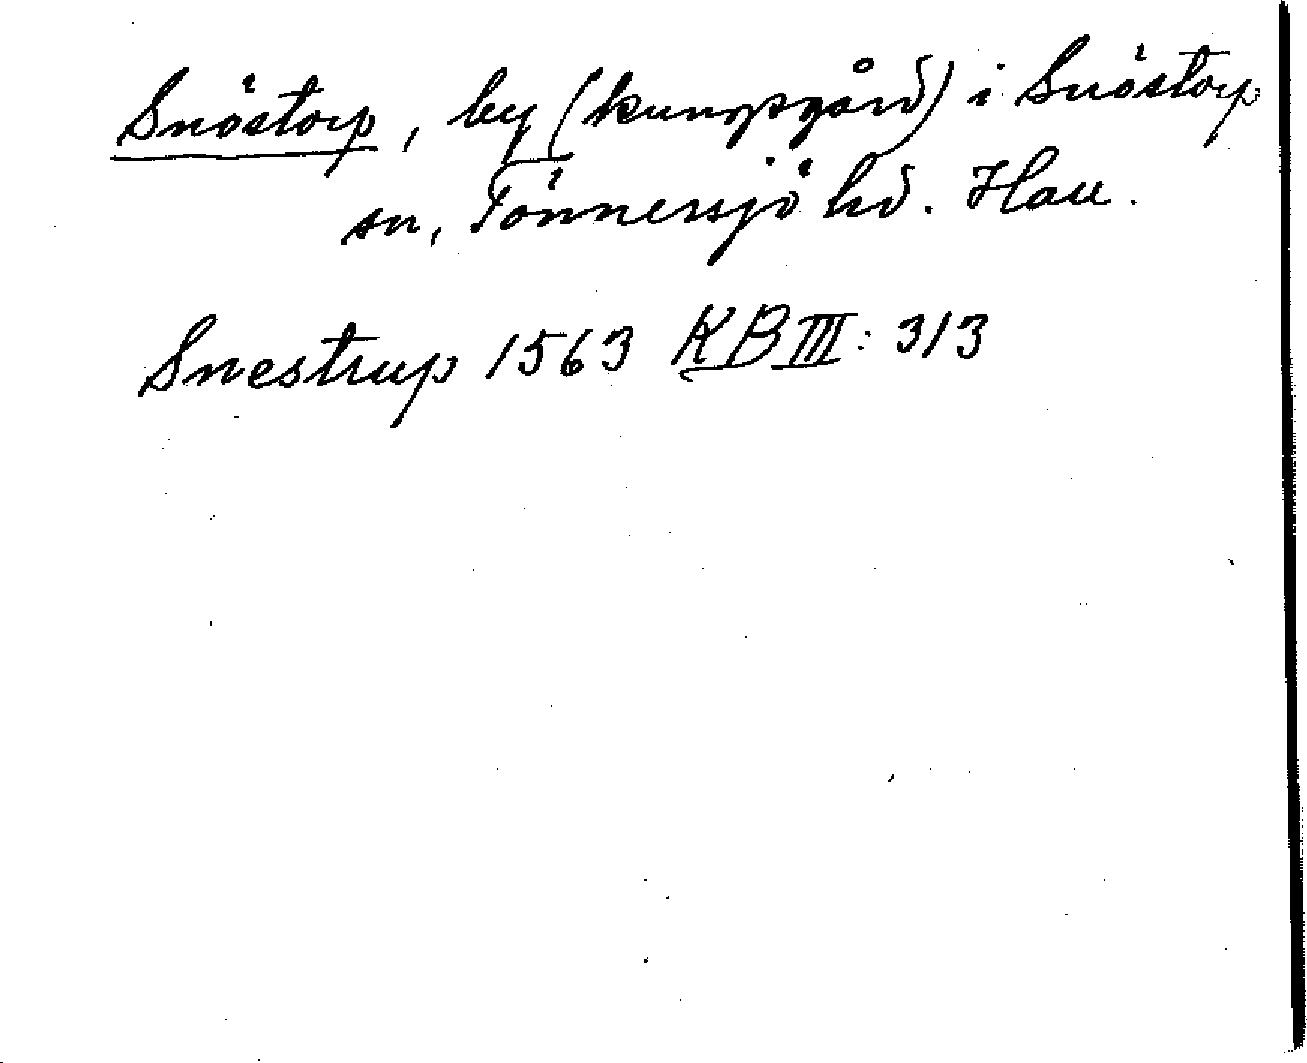 Snöstorp, by (kungsgård) i Snöstorp
sn, Tönnersjö hd. Hall.
Snestrup 1563 KB III: 313